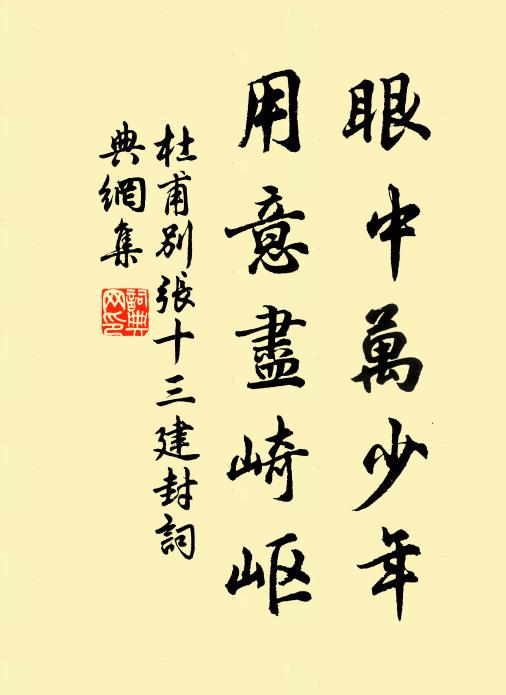 眼中萬少年
用意盡崎岖
杜甫别張十三建封詞
典網集
詞典
网印